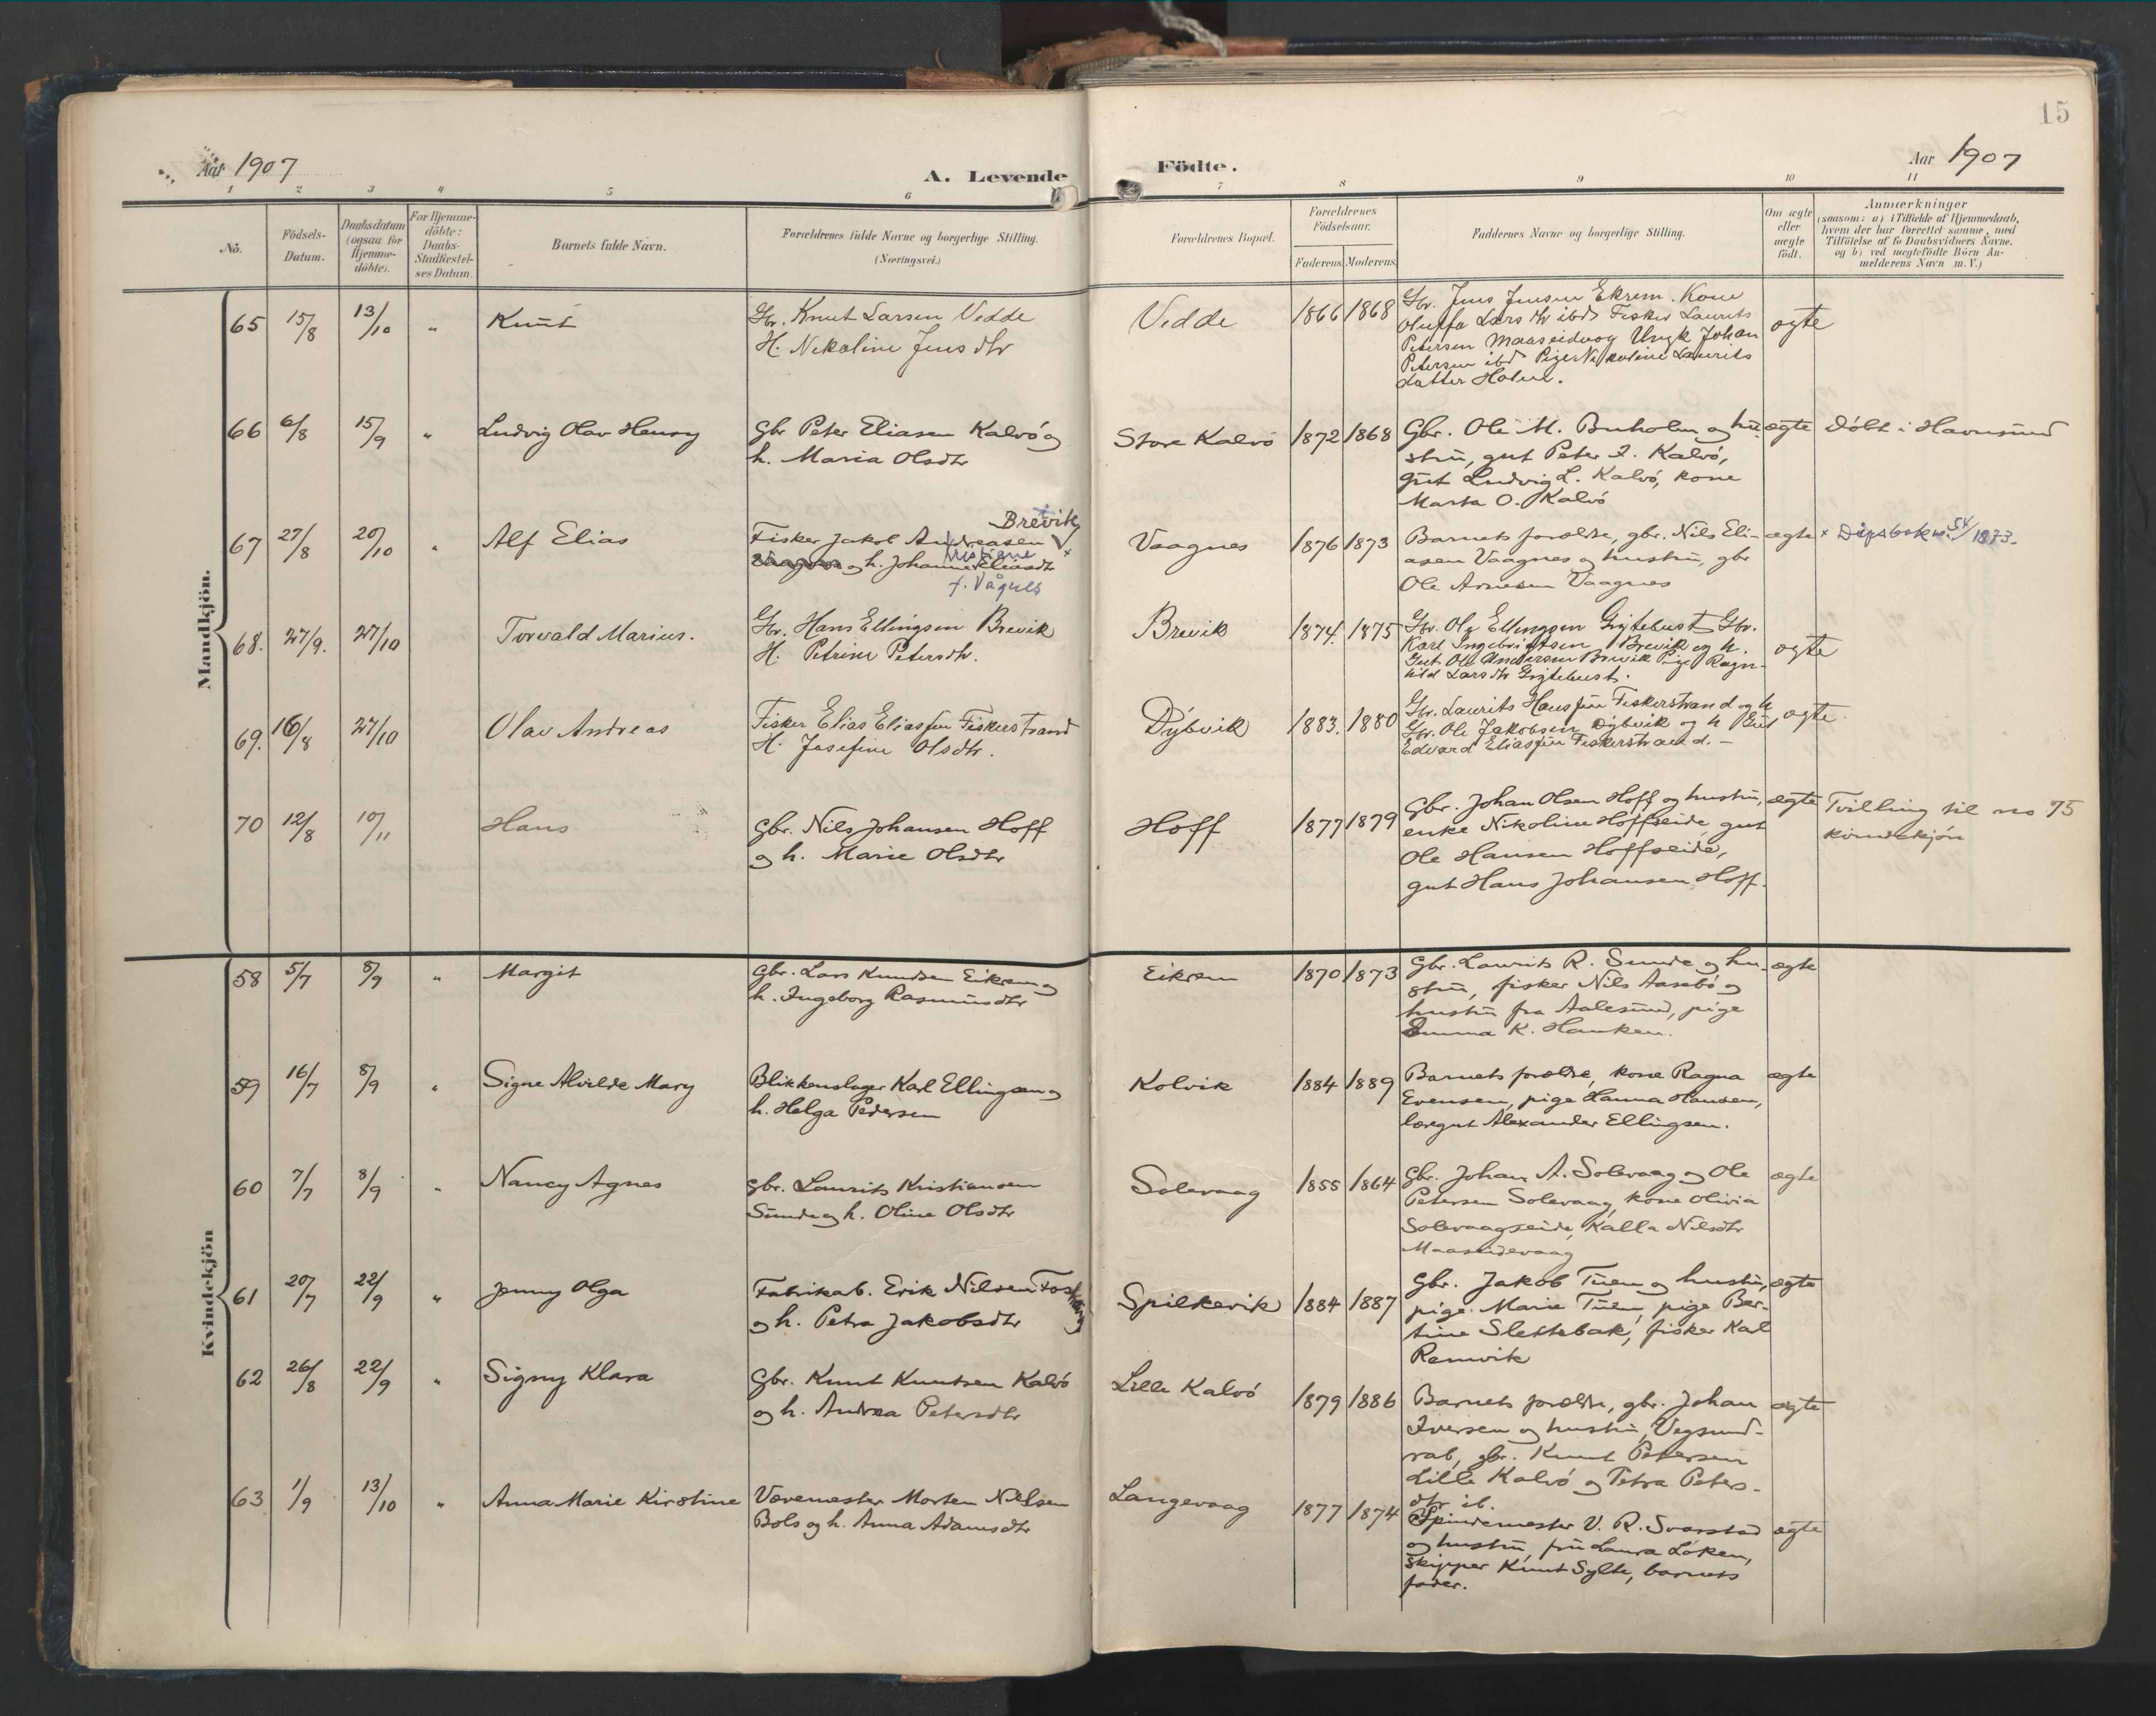 15
Aar 1907
A. Levende Födte.
Aar 1907
1 2 3 4 5 6 7 8 9 10 11
No.
Födsels-
Datum.
Daabsdatum
(ogsaa for
Hjemme-
döbte).
For Hjemme-
döbte:
Daabs-
Stadfæstel-
ses Datum.
Barnets fulde Navn.
Forældrenes fulde Navne og borgerlige Stilling.
(Næringsvei.)
Forældrenes Bopæl.
Forældrenes
Födselsaar.
Faderens. Moderens.
Faddernes Navne og borgerlige Stilling.
Om ægte
eller
uægte
födt.
Anmærkninger
(saasom: a) i Tilfælde af Hjemmedaab,
hvem der har forrettet samme, med
Tilföielse af to Daabsvidners Navne,
og b) ved uægtefödte Börn An-
melderens Navn m. V.)
Mandkjön.
65 15/8 13/10 " Knut
Gbr. Knut Larsen Vedde
H. Nekoline Jensdtr
Vedde 1866 1868
Gbr. Jens Jensen Ekrem. Kone
Oluffa Larsdtr ibd Fisker Laurits
Petersen Maaseidvog Ungk Johan
Petersen ibd Pige Nikoline Laurits
datter Holen.
ægte
66 6/8 15/9 " Ludvig Olav Henry
Gbr Peter Eliasen Kalvö og
h. Maria Olsdtr
Store Kalvö 1872 1868
Gbr. Ole M. Buholm og hu-
stru, gut Peter I. Kalvö,
gut Ludvig L. Kalvö, kone
Marta O. Kalvö
ægte Döbt i Havnsund
67 27/8 20/10 " Alf Elias
Brevik
Fisker Jakob Andreasen
Vaagnes og h. Johanne Kristiane Eliasdtr ×
f. Vågnes
Vaagnes 1876 1873
Barnets forældre, gbr. Nils Eli-
asen Vaagnes og hustru, gbr
Ole Arnesen Vaagnes
ægte × Dåpsbok nr. 54/1873.
68. 27/9. 27/10 Torvald Marius.
Gbr. Hans Ellingsen Brevik
H. Petrine Petersdtr.
Brevik 1874. 1875
Gbr. Ole Ellingsen Grytebust Gbr.
Karl Ingebrigtsen Brevik og h.
Gut Ole Andersen Brevik Pige Ragn-
hild Larsdtr Grytebust.
ægte
69. 16/8 27/10 Olav Andreas
Fisker Elias Eliassen Fiskerstrand
H. Josefine Olsdtr.
Dybvik 1883. 1880
Gbr. Laurits Hanssen Fiskerstrand og h
Gbr. Ole Jakobsen Dybvik og h Gut
Edvard Eliassen Fiskerstrand. –
ægte
70 12/8 10/11 Hans
Gbr. Nils Johansen Hoff
og h. Marie Olsdtr
Hoff 1877 1879
Gbr. Johan Olsen Hoff og hustru,
enke Nikoline Hoffseide, gut
Ole Hansen Hoffseide,
gut Hans Johansen Hoff.
ægte Tvilling til no 75
kvindekjön
Kvindekjön
58 5/7 8/9 " Margit
Gbr. Lars Knudsen Eikrem og
h. Ingeborg Rasmusdtr
Eikrem 1870 1873
Gbr. Laurits R. Sunde og hu-
stru, fisker Nils Aasebö og
hustru fra Aalesund, pige
Emma K. Hanken.
ægte
59 16/7 8/9 " Signe Alvilde Mary
Blikkenslager Karl Ellingsen og
h. Helga Pedersen
Kolvik 1884 1889
Barnets forældre, kone Ragna
Evensen, pige Hanna Hansen,
læregut Alexander Ellingsen.
ægte
60 7/7 8/9 " Nancy Agnes
Gbr. Laurits Kristiansen
Sunde og h. Oline Olsdtr
Solevaag 1855 1864
Gbr. Johan A. Solevaag og Ole
Petersen Solevaag, kone Olivia
Solevaagseide, Kalla Nilsdtr
Maaseidevaag
ægte
61 20/7 22/9 " Jenny Olga
Fabrikab. Erik Nilsen
og h. Petra Jakobsdtr
Spilkevik 1884 1887
Gbr. Jakob Tuen og hustru,
pige Marie Tuen, pige Ber-
tine Slettebak, fisker Karl
Remvik
ægte
62 26/8 22/9 " Signy Klara
Gbr. Knut Knutsen Kalvö
og h. Andrea Petersdtr
Lille Kalvö 1879 1886
Barnets forældre, gbr. Johan
Iversen og hustru, Vegsund-
rab, gbr. Knut Petersen
Lille Kalvö og Petra Peters-
dtr ib.
ægte
63 1/9 13/10 " Anna Marie Kirstine
Vævemester Morten Nielsen
Bols og h. Anna Adamsdtr
Langevaag 1877 1874
Spindemester V. R. Svarstad
og hustru, fru Laura Löken,
skipper Knut Sylte, barnets
fader.
ægte